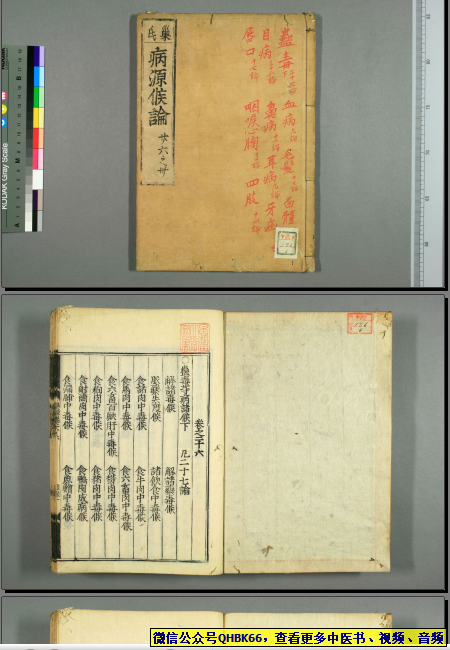 KODAK Gray Scale
A
巢氏
病源候論
廿六之卅
蠱毒 血病 毛髮 面體
目病 鼻病 耳病 牙齒
唇口 咽喉心胸 四肢
卷之二十六
○蠱毒等病諸候下 凡二十七論
解諸毒候 解諸藥毒候
服藥失度候 諸飲食中毒候
食諸肉中毒候 食牛肉中毒候
食馬肉中毒候 食六畜肉中毒候
食六畜百獸肝中毒候
食狗肉中毒候 食猪肉中毒候
食射罔肉中毒候 食鴨肉成病候
食漏脯中毒候 食魚鱠中毒候
微信公众号QHBK66，查看更多中医书、视频、音频